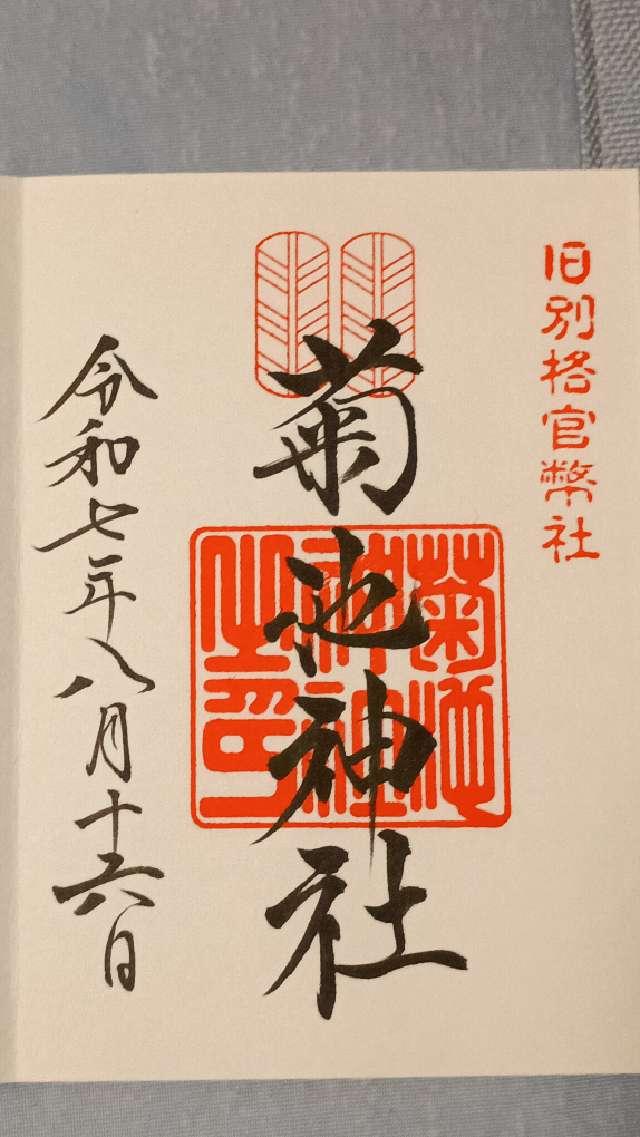 旧別格官幣社
菊池神社
菊池
神社
之印
令和七年八月十六日